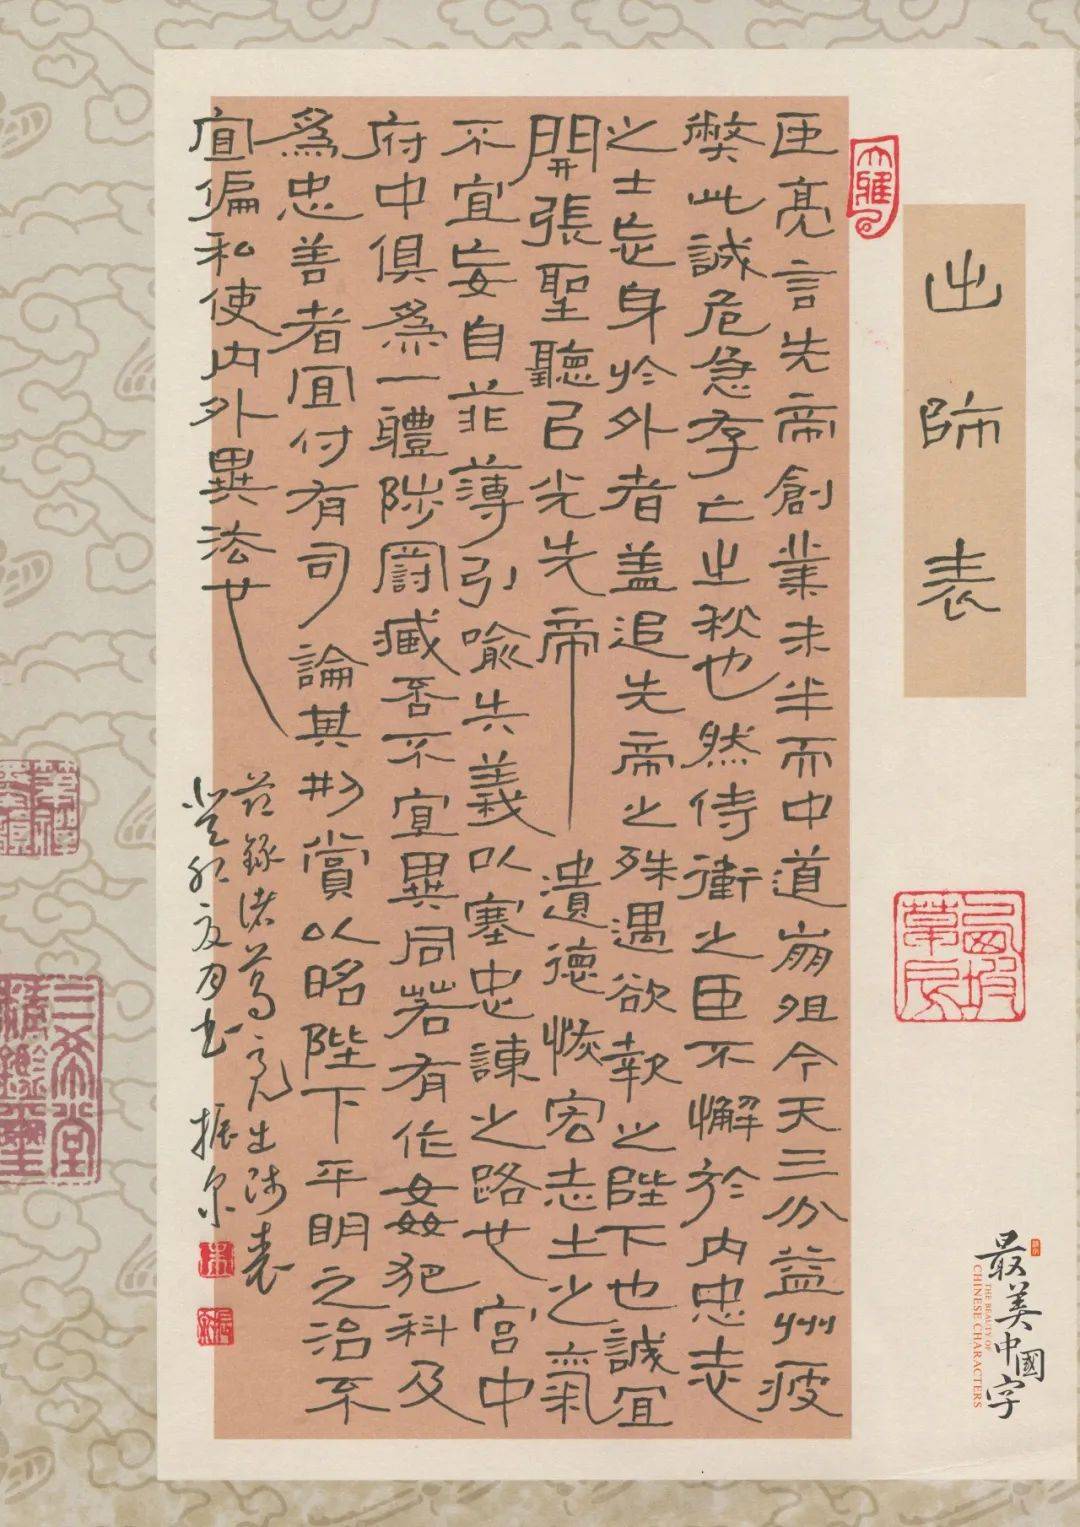 出師表
臣亮言先帝創業未半而中道崩殂今天三分益州疲
弊此誠危急存亡之秋也然侍衛之臣不懈於内忠志
之士忘身於外者盖追先帝之殊遇欲報之陛下也誠宜
開張聖聽㠯光先帝遺德恢宏志士之氣
不宜妄自菲薄引喻失義以塞忠諫之路也宫中
府中俱為一體陟罰臧否不宜異同若有作姦犯科及
為忠善者宜付有司論其刑賞以昭陛下平明之治不
宜偏私使内外異法也
節録诸葛亮出师表
癸卯夏月书 振泉
三希堂
精鑑璽
最美中國字
THE BEAUTY OF
CHINESE CHARACTERS